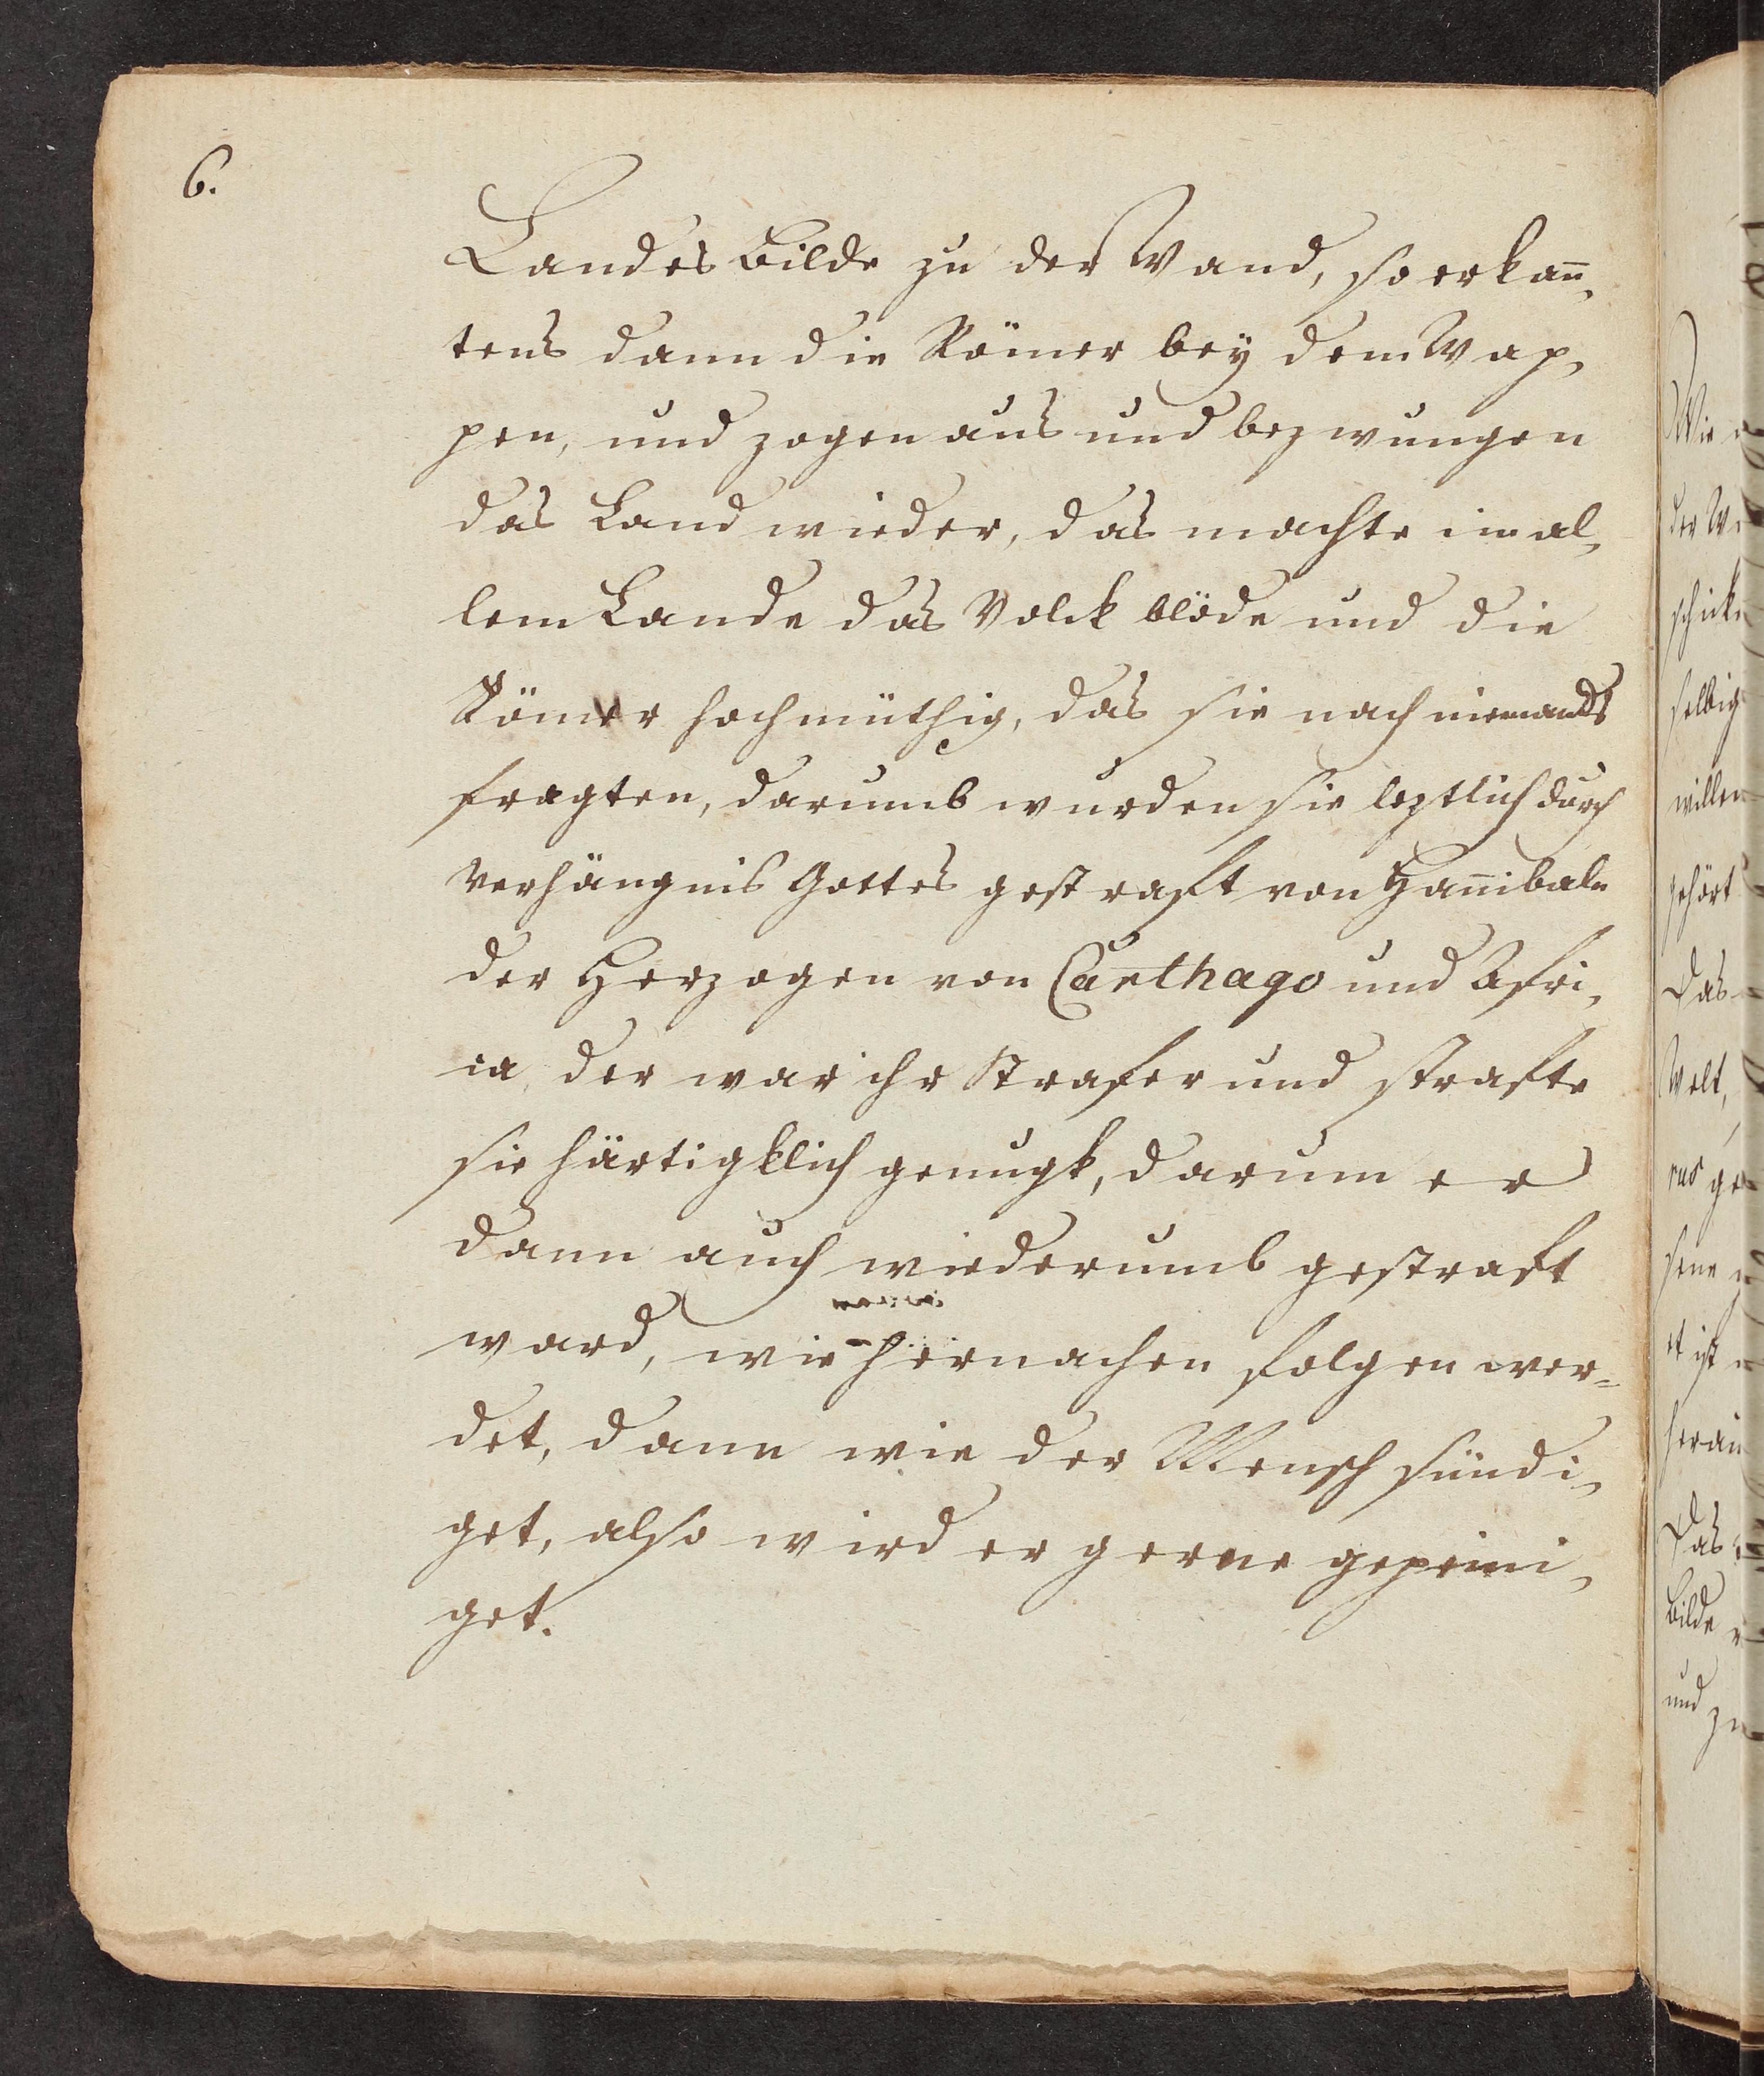 6.
Landes Bilde zu der Wand, so erkan̄,
tens dann die Römer bey dem Wap,
pen, und zogen aus und bezwungen
das Land wieder, das machte im al,
lem Lande das Volck blöde und die
Römer hochmüthig, das sie nach niemands
fragten, darumb wurden sie leztlich durch
verhängnis Gottes gestraft von Han̄ibaln
der Herzogen von Carthago und Afri,
ca der war ihr Strafer und strafte
sie härtigklich genugk, darum er
dann auch wiederumb gestraft
ward, wie hiernachen folgen wer=
det, dann wie der Mensch sündi,
get, also wird er gerne gepeini,
get.
Wie
der We
schick
selbig
willen
gehört
Das
Welt,
rus ge
sene
et ist
herau
Das
Bilde
und zu